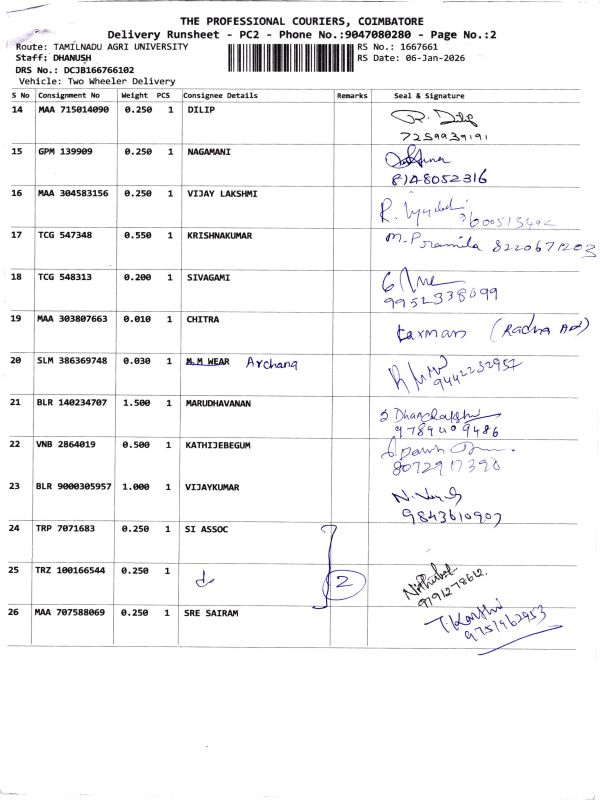 THE PROFESSIONAL COURIERS, COIMBATORE
Delivery Runsheet - PC2 - Phone No.:9047080280 - Page No.:2
Route: TAMILNADU AGRI UNIVERSITY
RS No.: 1667661
Staff: DHANUSH
RS Date: 06-Jan-2026
DRS No.: DCJB166766102
Vehicle: Two Wheeler Delivery
S No Consignment No Weight PCS Consignee Details Remarks Seal & Signature
14 MAA 715014090 0.250 1 DILIP R. Dilip
7259939191
15 GPM 139909 0.250 1 NAGAMANI
8148052316
16 MAA 304583156 0.250 1 VIJAY LAKSHMI
17 TCG 547348 0.550 1 KRISHNAKUMAR M. Pramila 8220671203
18 TCG 548313 0.200 1 SIVAGAMI
9952338099
19 MAA 303807663 0.010 1 CHITRA
20 SLM 386369748 0.030 1 M.M WEAR Archana
9442232957
21 BLR 140234707 1.500 1 MARUDHAVANAN
9789409486
22 VNB 2864019 0.500 1 KATHIJEBEGUM
8072917390
23 BLR 9000305957 1.000 1 VIJAYKUMAR
9843610907
24 TRP 7071683 0.250 1 SI ASSOC
25 TRZ 100166544 0.250 1 2
9791278612
26 MAA 707588069 0.250 1 SRE SAIRAM T. Karthi
9751962953